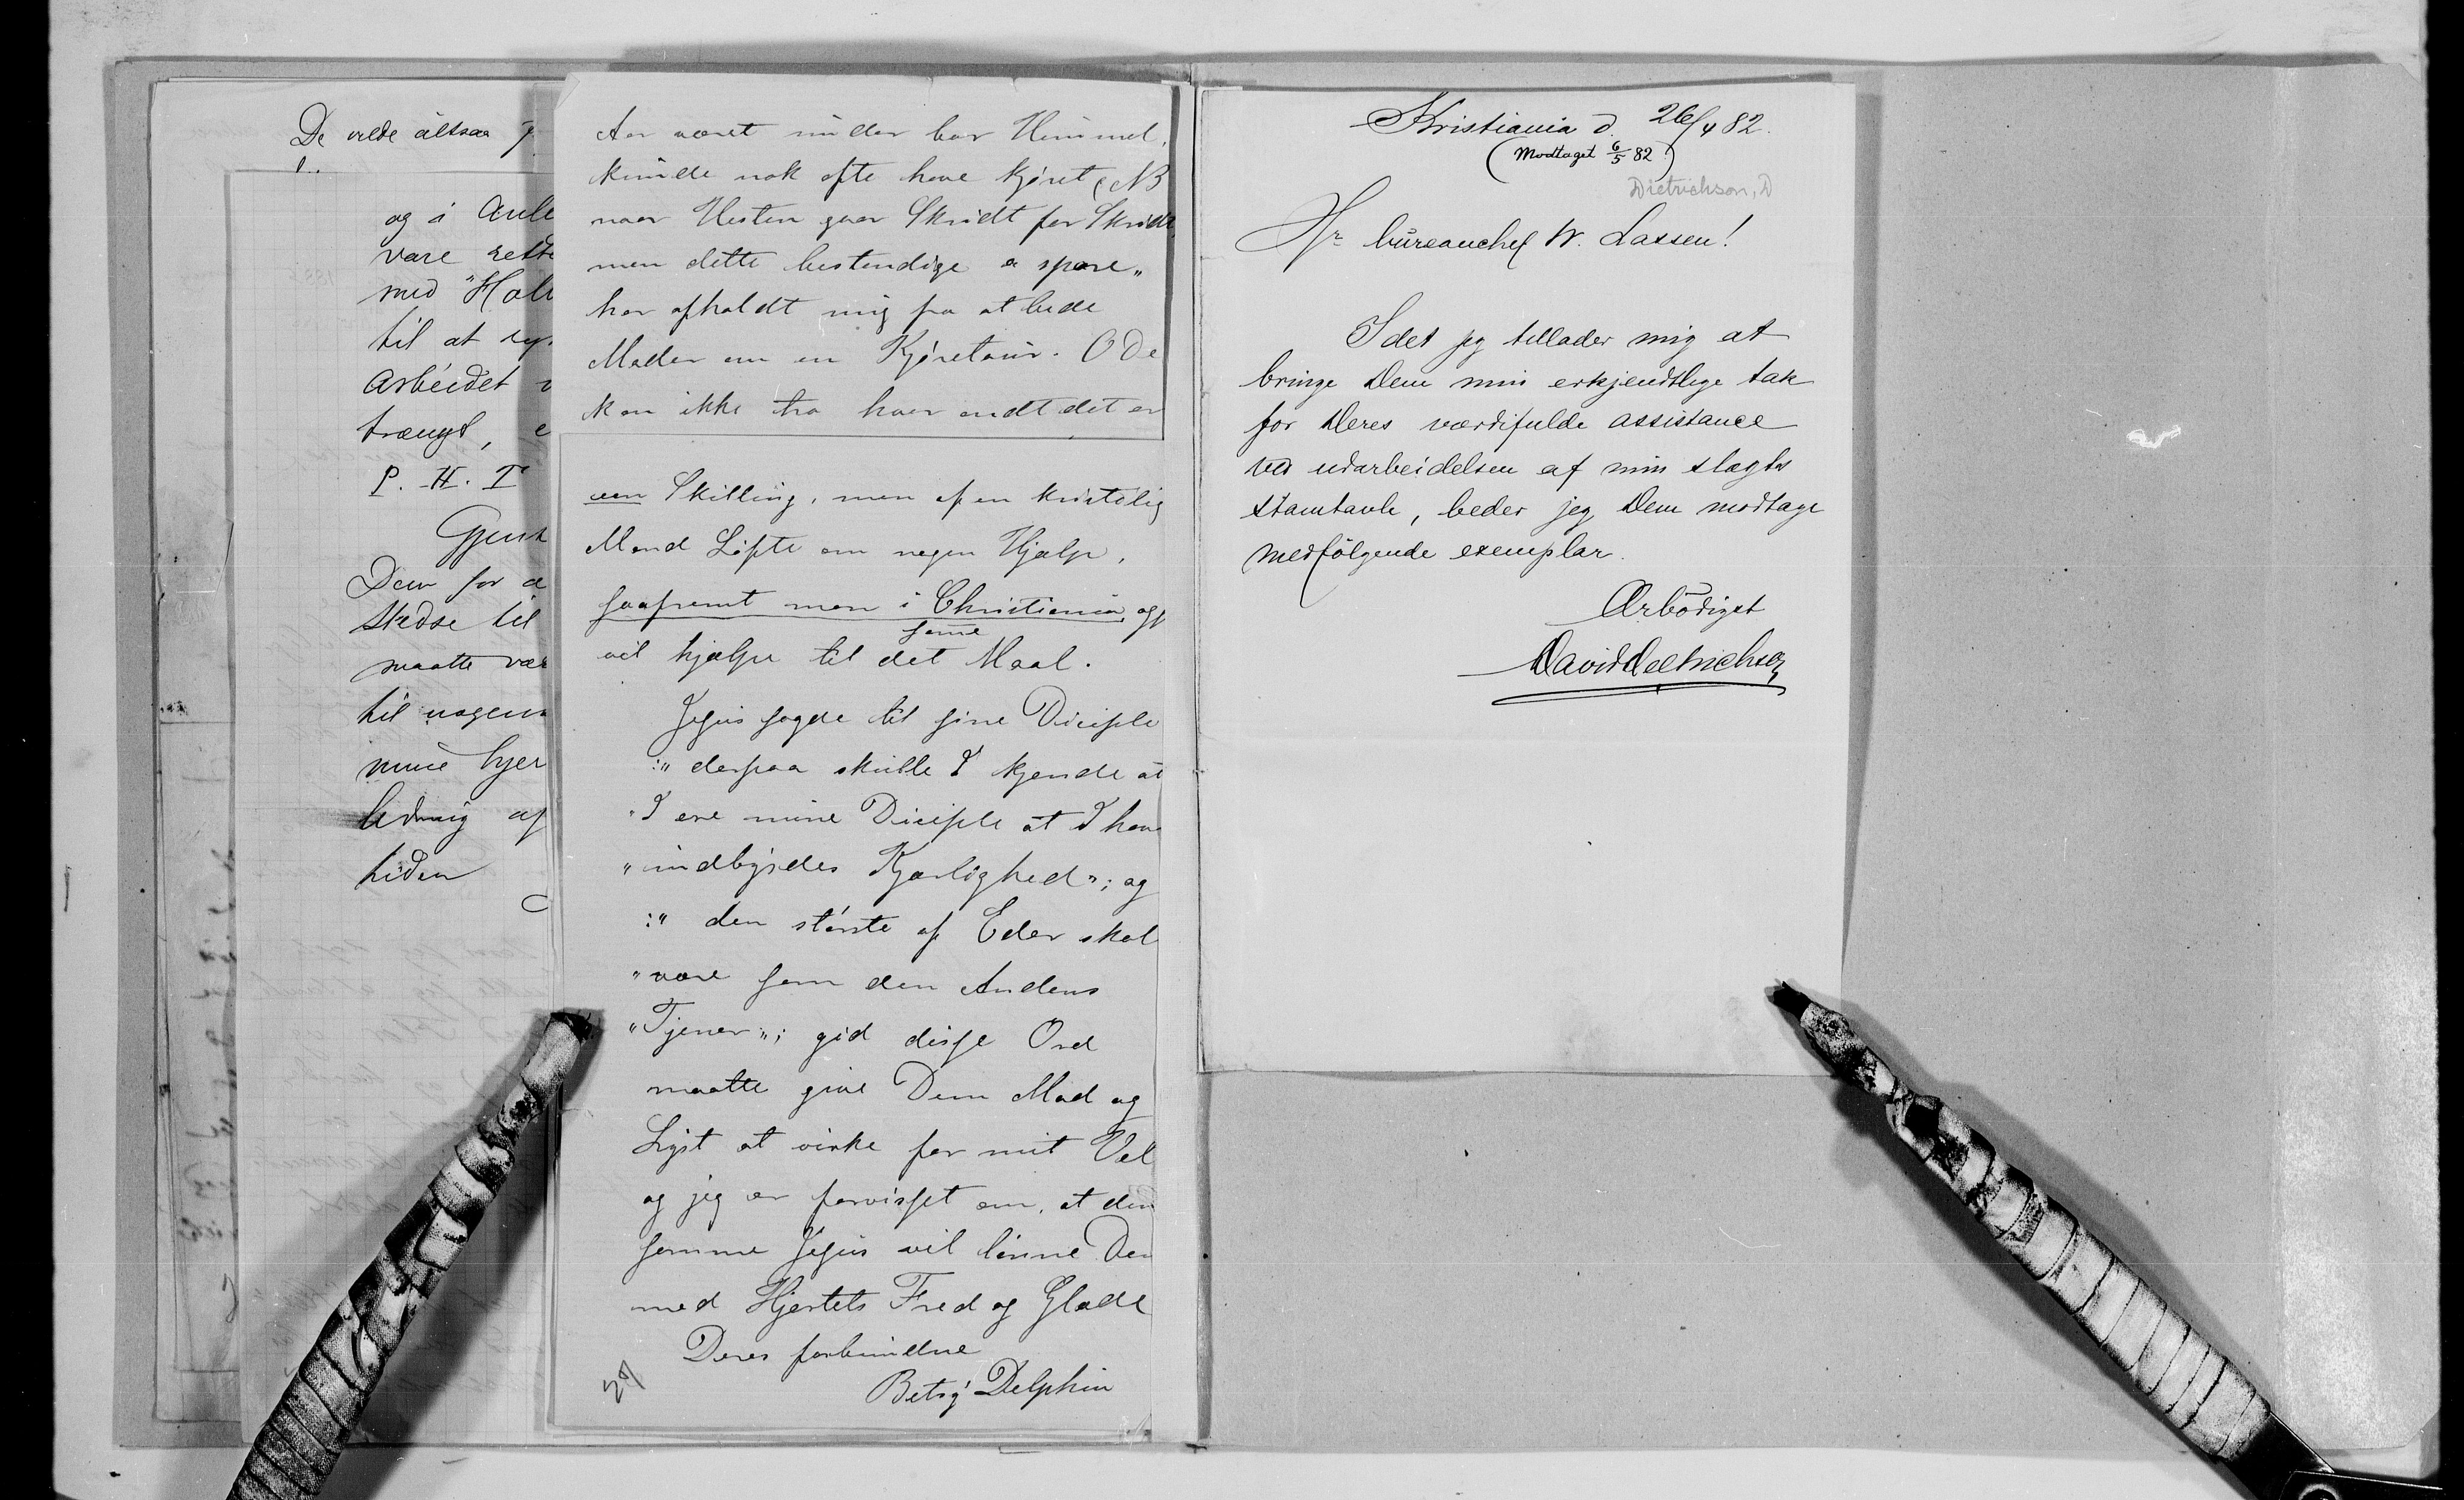 De vilde altsaa
og i Anle
vare rette
med "Hal
til at
Arbeidet
trængt, e
P. H. T
Gjent
Dem for
Stedse til
maatte vær
til nogen
mine hjer
ledning af
tiden
Aar været under bar Himmel,
kunde nok ofte have kjøret (NB
naar Hesten gaar Skridt for Skridt,
men dette bestendige a spare„
har afholdt mig fra at bede
Moder om en Kjøretour. O De
kan ikke tro hvor ondt det er
een Skilling, men af en kristelig
Mand Løfte om nogen Hjælp,
saafremt man i Christiania og
vil hjælpe til det samme Maal.
Jesus sagde til sine Diciple
:„ derpaa skulle I kjende at
„I ere mine Diciple at I have
„indbyrdes Kjærlighed„; og
:„ den største af Eder skal
„være som den Andens
„Tjener„; gid disse Ord
maatte give Dem Mod og
Lyst at virke for mit Vel
og jeg er forvisset om, at den
samme Jesus vil lønne Dem
med Hjertets Fred og Glæde
Deres forbundne
Betsy Delphin
Kristiania d. 26/4 82.
(Modtaget 6/5 82)
Dietrichson, D
Hr. bureauchef W. Lassen!
Idet jeg tillader mig at
bringe Dem min erkjendtlige tak
for Deres værdifulde assistance
ved udarbeidelsen af min slægts
stamtavle, beder jeg Dem modtage
medfølgende exemplar.
Ærbødigst
David Dietrichson